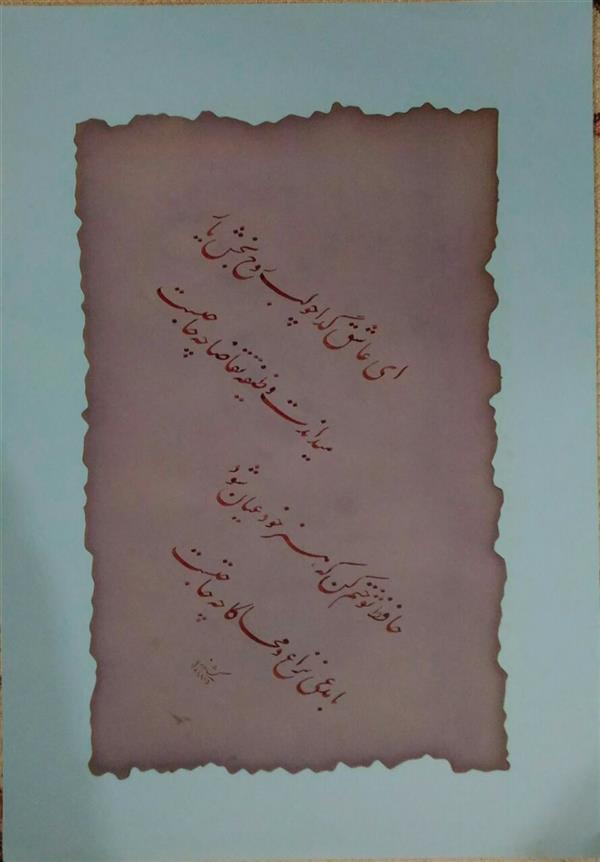 ای عاشق گدا چو لب روح بخش یار
میداندت وظیفه تقاضا چه حاجتست
حافظ تو ختم کن که هنر خود عیان شود
با مدعی نزاع و محاکا چه حاجتست